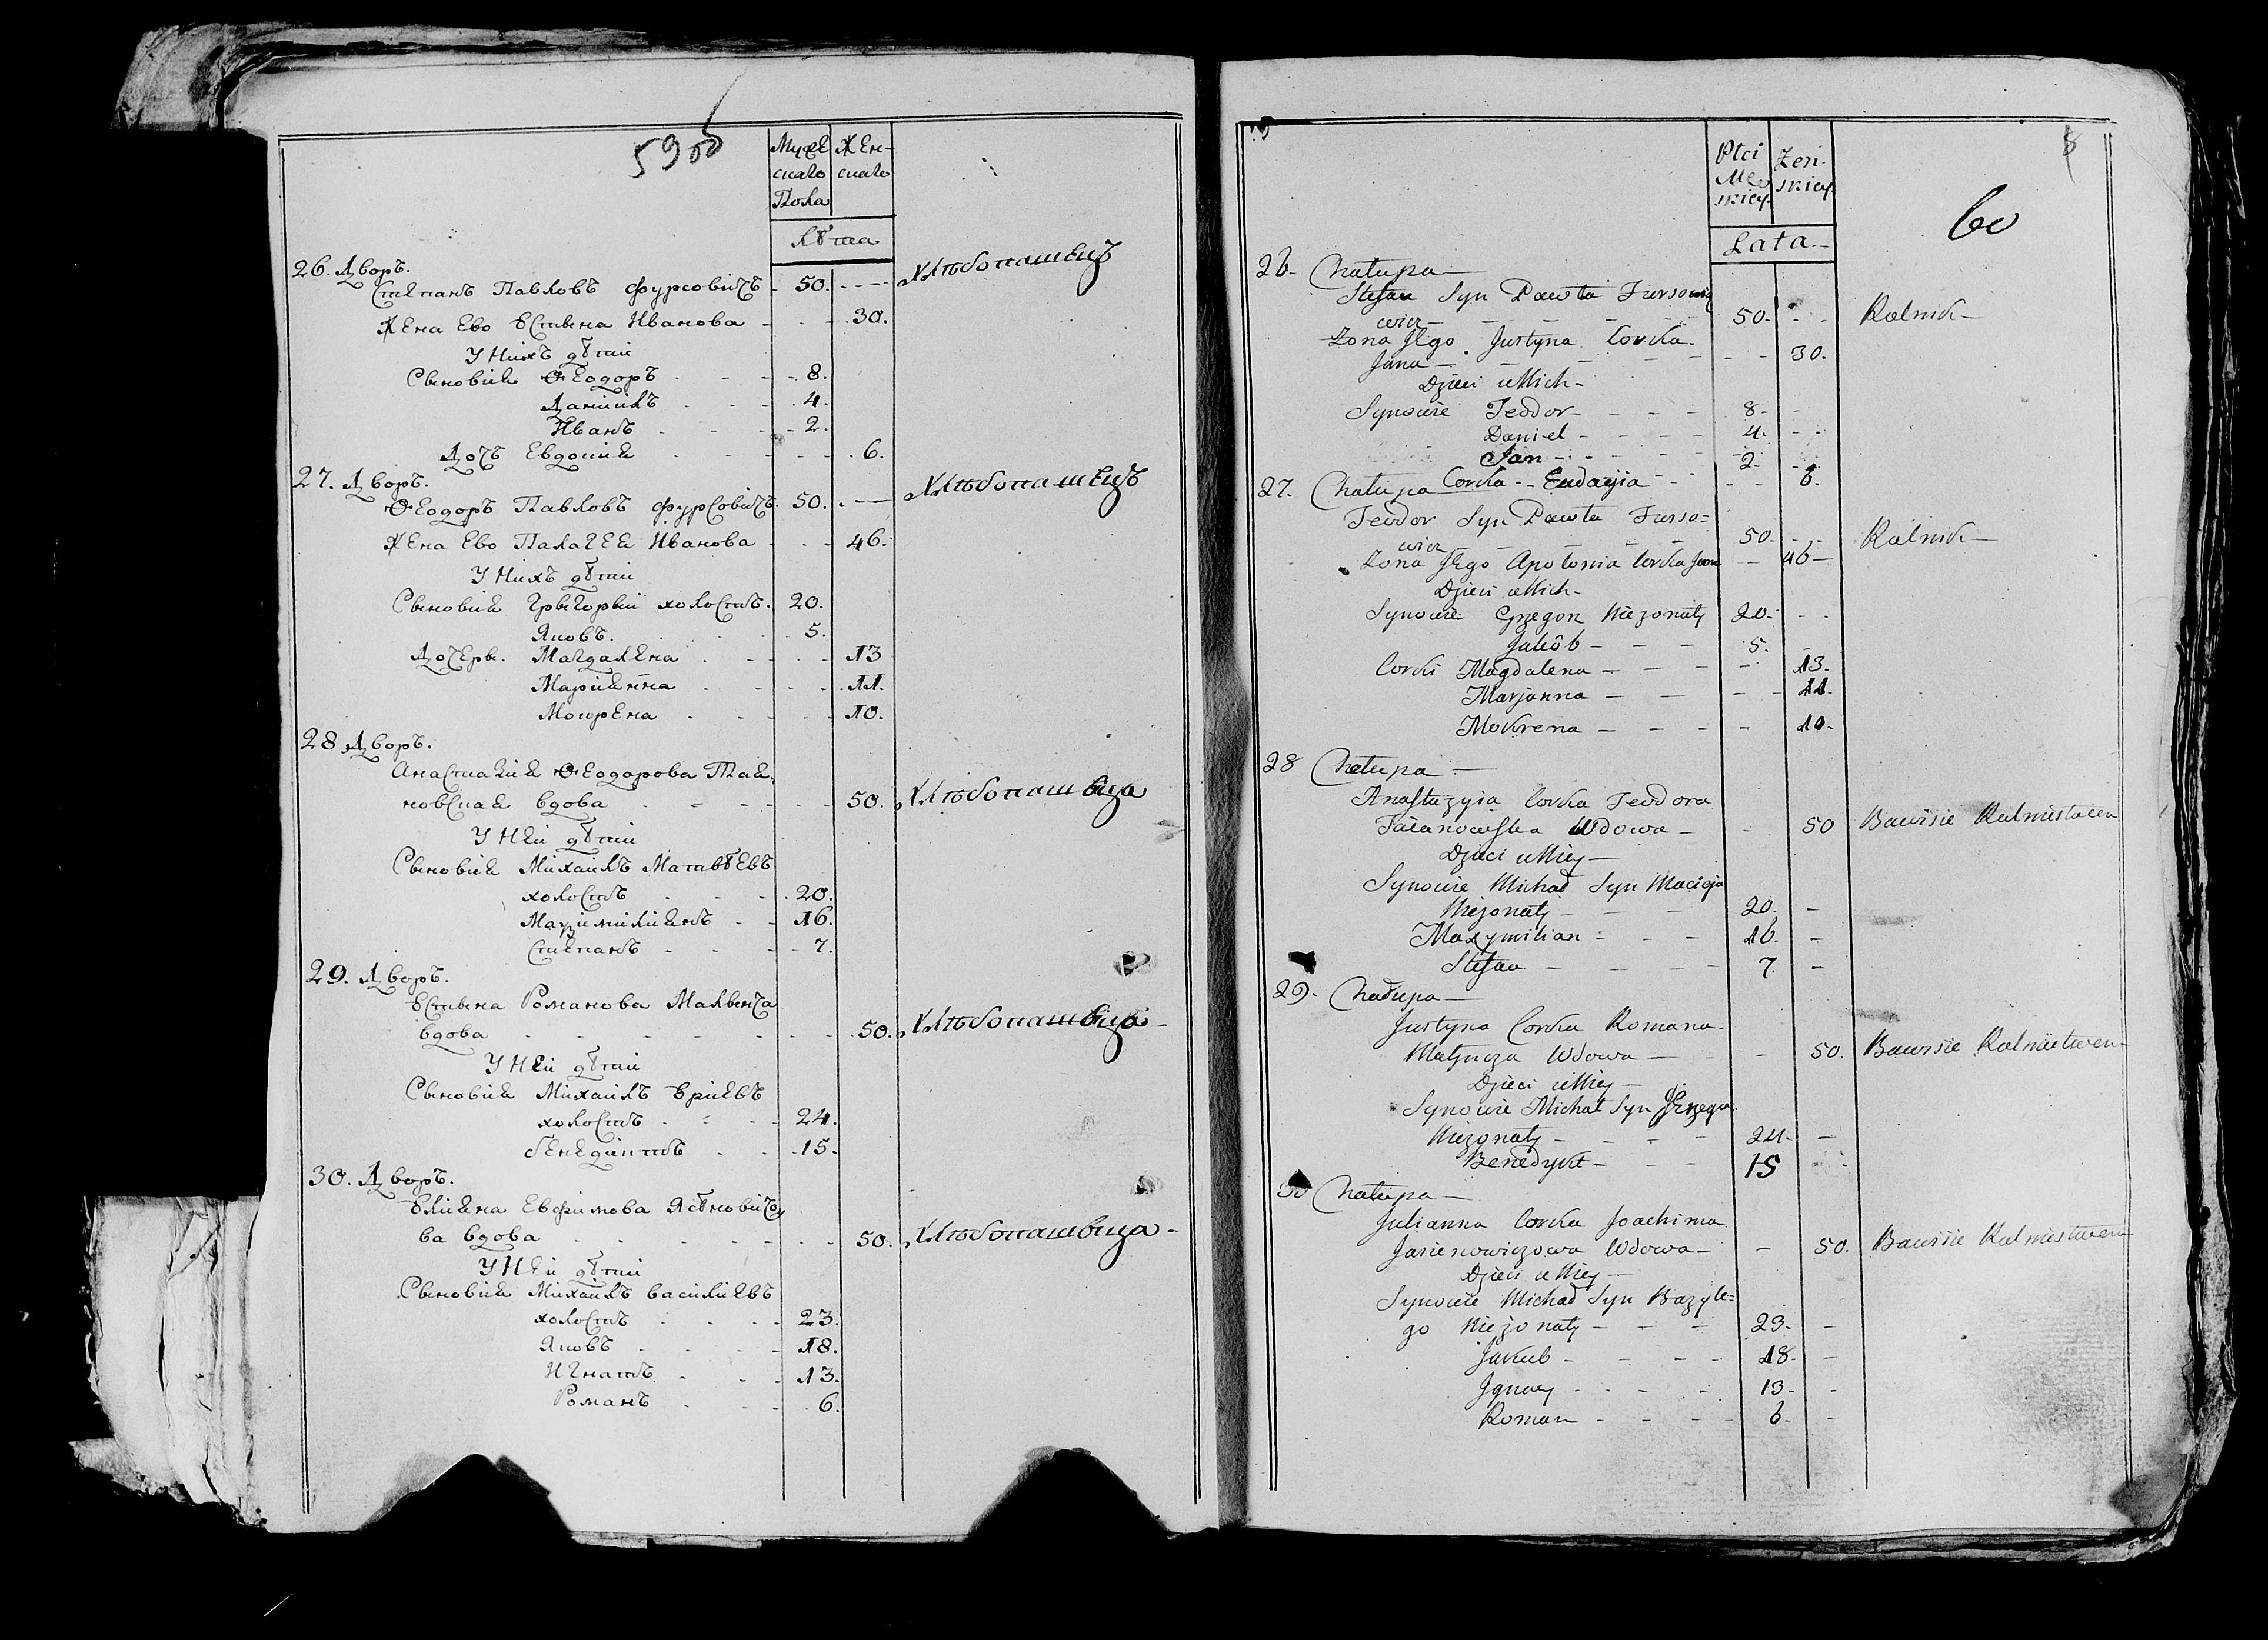 59об
Мужескаго Пола
Женскаго
Лѣта
26. Дворъ.
Стѣпанъ Павловъ Фурсовичъ - 50. - - - Хлѣбопашецъ
Жена Ево Юстына Иванова - - - 30.
У Нихъ дѣти
Сыновия Ѳеодоръ - - - 8.
Данiилъ - - 4.
Иванъ - - 2.
Дочъ Евдоция - - - 6.
27. Дворъ.
Ѳеодоръ Павловъ Фурсовичъ. 50. - - - Хлѣбопашецъ
Жена Ево Палагея Иванова - - - 46.
У Нихъ дѣти
Сыновия Грыгорый холостъ. 20.
Яковъ. - - 5.
Дочеры. Магдалена - - - 13
Марианна - - - 11.
Мокрена - - - 10.
28 Дворъ.
Анастазия Ѳеодорова
новская вдова - - - 50. Хлѣбопашица
У Неи дѣти
Сыновия Михаилъ Матвѣевъ
холостъ - - 20.
Мациимилиянъ - - 16.
Стѣпанъ - - - 7.
29. Дворъ.
Юстына Романова Малынча
вдова - - - - - 50. Хлѣбопашица -
У Неи дѣти
Сыновия Михаилъ Юриевъ
холостъ - - - 24.
Бенедиктъ - - 15.
30. Дворъ.
Юлияна Евфимова Ясѣновичо
ва вдова - - - - 50. Хлѣбопашица -
У Неи дѣти
Сыновия Михаилъ василиевъ
холостъ - - - 23.
Яковъ - - - 18.
Игнатъ - - - 13.
Романъ - - - 6.
Płci Męskiey
Żenskiey
60
Lata -
26 - Chałupa -
Stefan Syn Pawła Fursowi
cwicz - - - - - 50. - - Rolnik -
Żona Jego Justyna Corka
Jana - - - - - 30.
Dzieci u Nich -
Synowie Teodor - - - 8 -
Daniel - - - 4. - -
Jan - - - 2. - -
Corka - - Eudoxia - - - - 6.
27. Chałupa
Teodor Syn Pawła Furso=
wicz - - - - 50 - - - Rolnik -
Żona Jego Apolonia Corka Jana - 46 -
Dzieci u Nich -
Synowie Grzegorz Nieżonaty 20. - -
Jakób - - - 5.
Corki Magdalena - - - - 13.
Marjanna - - - - 11.
Mokrena - - - - 10.
28 Chałupa -
Anastazyia Corka Teodora
Wdowa - - 50 Bawi sie Rolnistwem
Dzieci u Niey -
Synowie Michał Syn Macieja
Nieżonaty - - - 20. -
Maxymilian - - - 16. -
Stefan - - - - 7. -
29 - Chałupa -
Justyna Corka Romana -
Małyncza Wdowa - - - 50. Bawi sie Rolnistwem -
Dzieci u Niey -
Synowie Michał Syn
Nieżonaty - - - - 24. -
Benedykt - - - 15 -
30 Chałupa -
Julianna Corka Joachima
Jasienowiczowa Wdowa - - 50. Bawi sie Rolnistwem
Dzieci u Niey -
Synowie Michał Syn Bazyle=
go Nieżonaty - - - 23 - -
Jakub - - - - 18 - -
Jgnacy - - - - 13 - -
Roman - - - - 6 - -